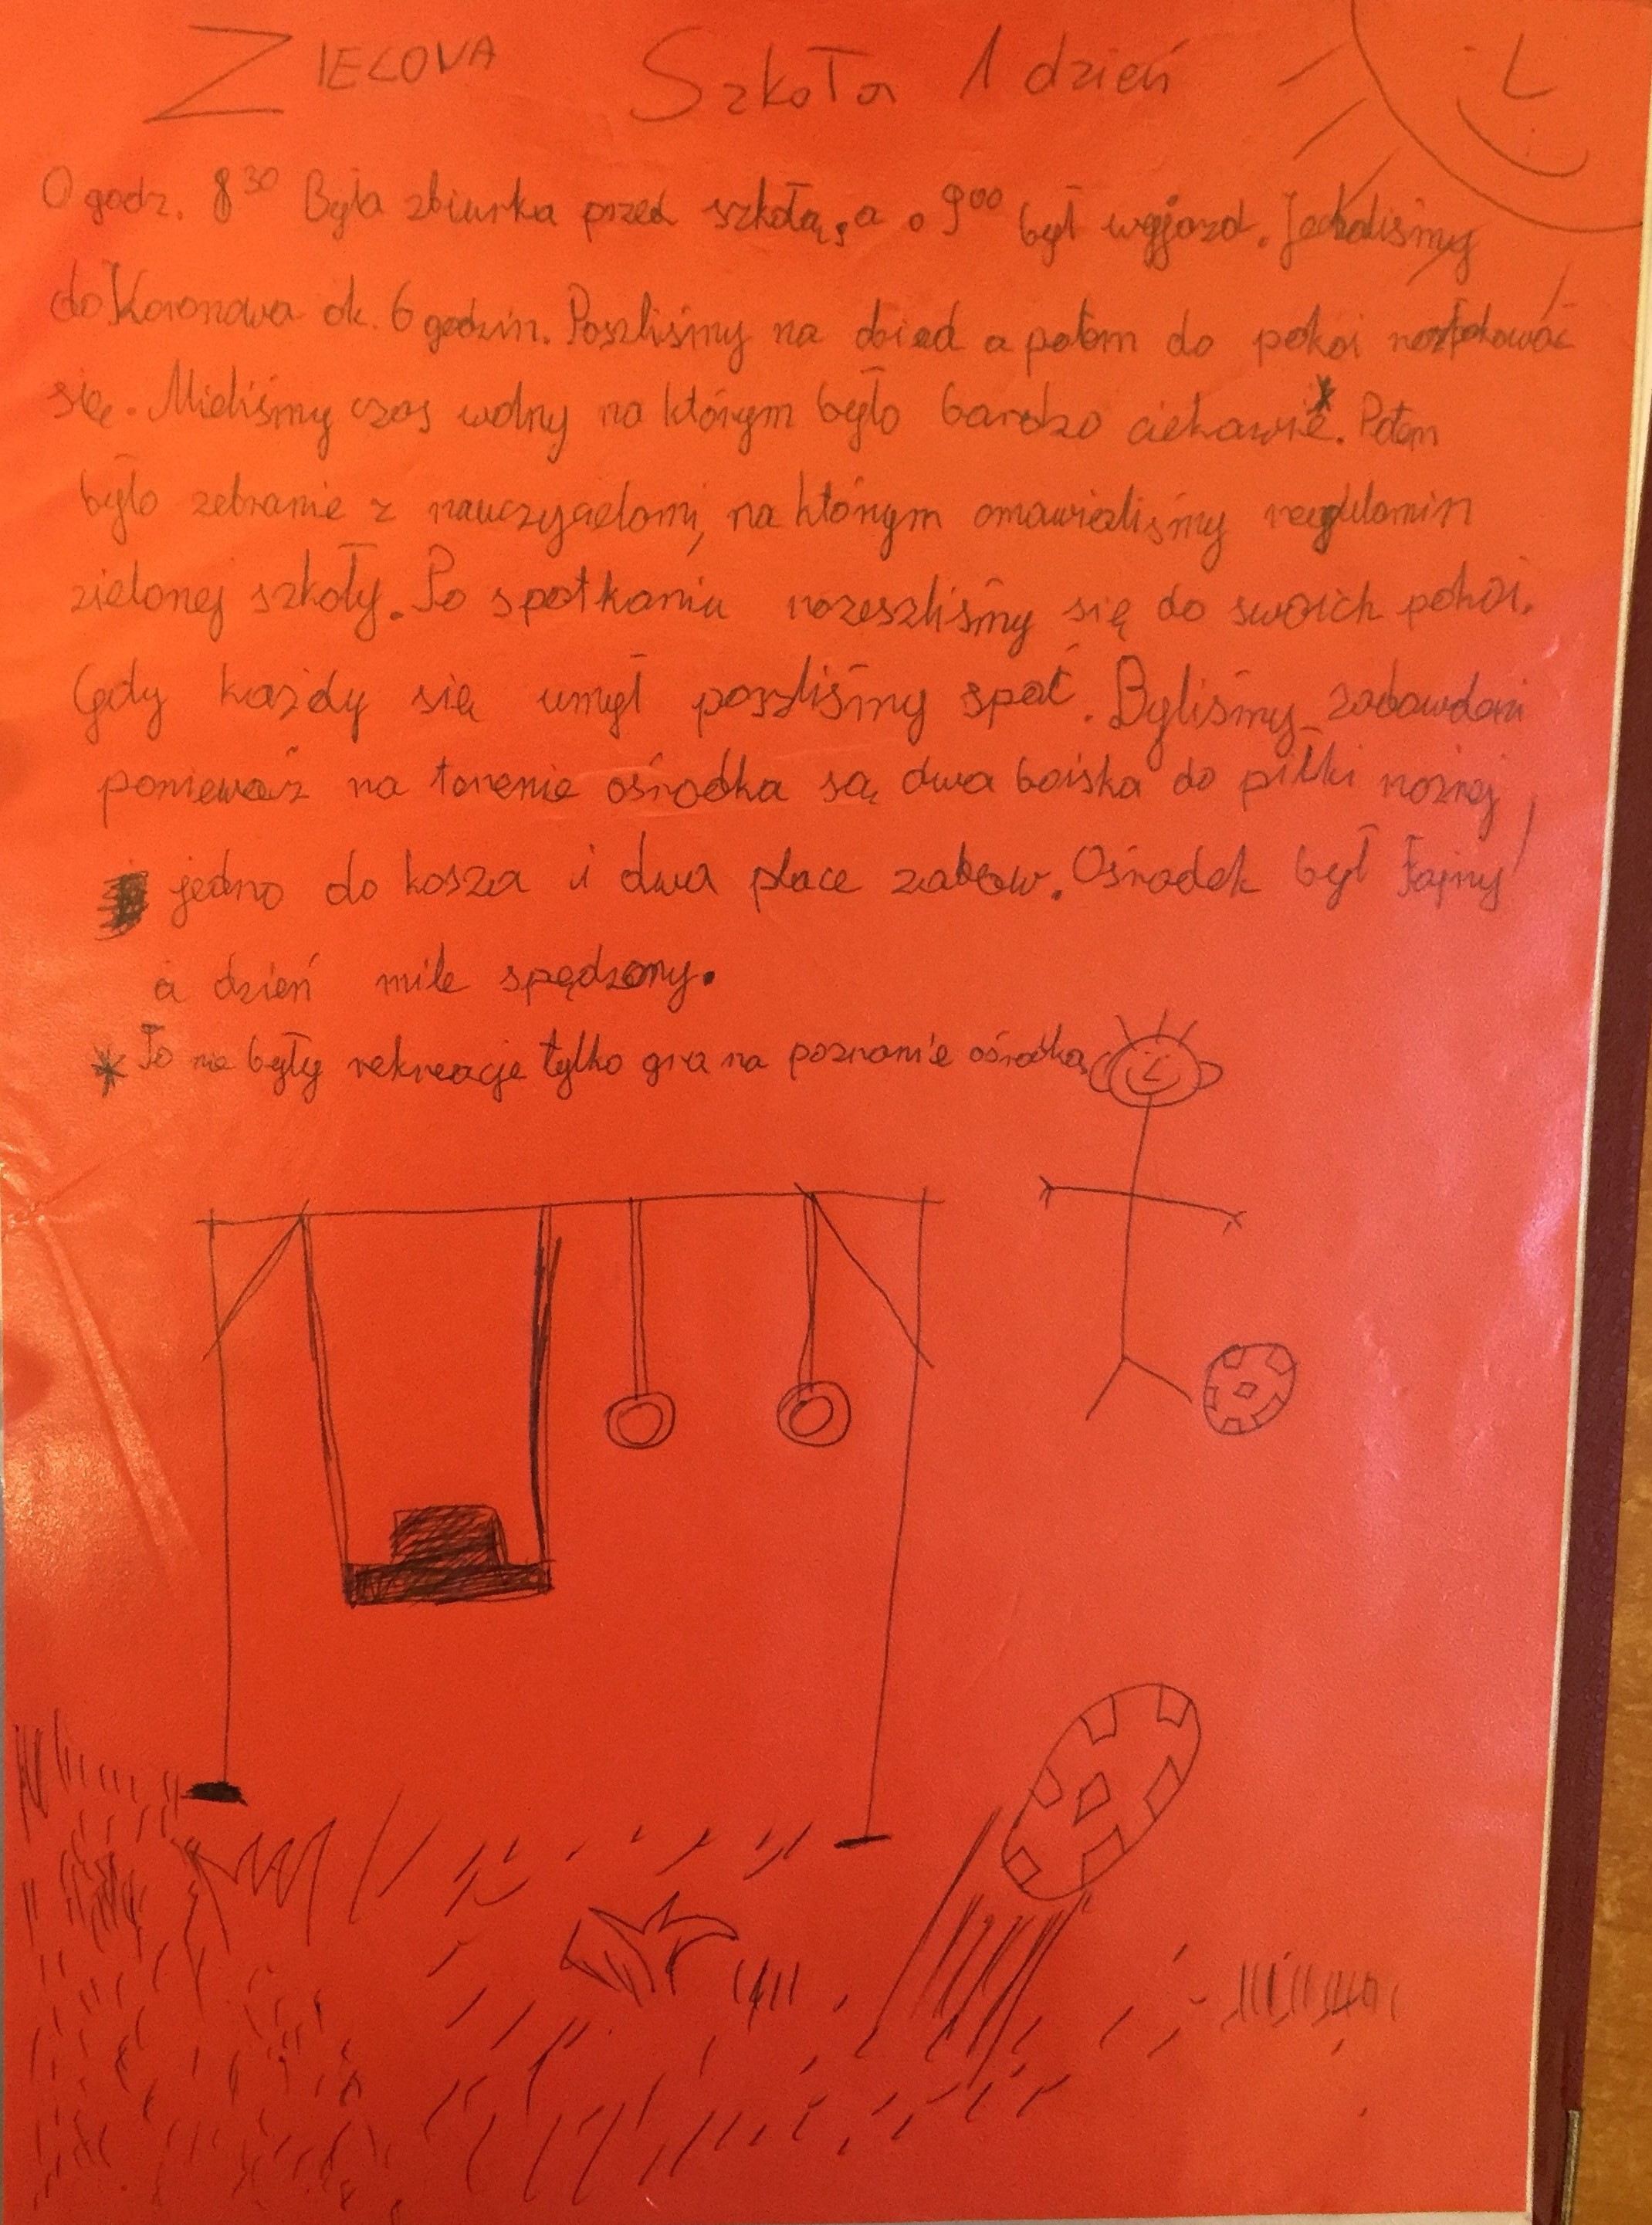 ZIELONA Szkoła 1 dzień
O godz. 8³⁰ Była zbiurka przed szkołą, a o 9⁰⁰ był wyjazd. Jechaliśmy
do Koronowa ok. 6 godzin. Poszliśmy na obiad a potem do pokoi rozpakować
się. Mieliśmy czas wolny na którym było bardzo ciekawie*. Potem
było zebranie z nauczycielami, na którym omawialiśmy regulamin
zielonej szkoły. Po spotkaniu rozeszliśmy się do swoich pokoi.
Gdy każdy się umył poszliśmy spać. Byliśmy
ponieważ na terenie ośrodka są dwa boiska do piłki nożnej
jedno do kosza i dwa place zabaw. Ośrodek był fajny!
a dzień mile spędzony.
* To nie były rekreacje tylko gra na poznanie ośrodka